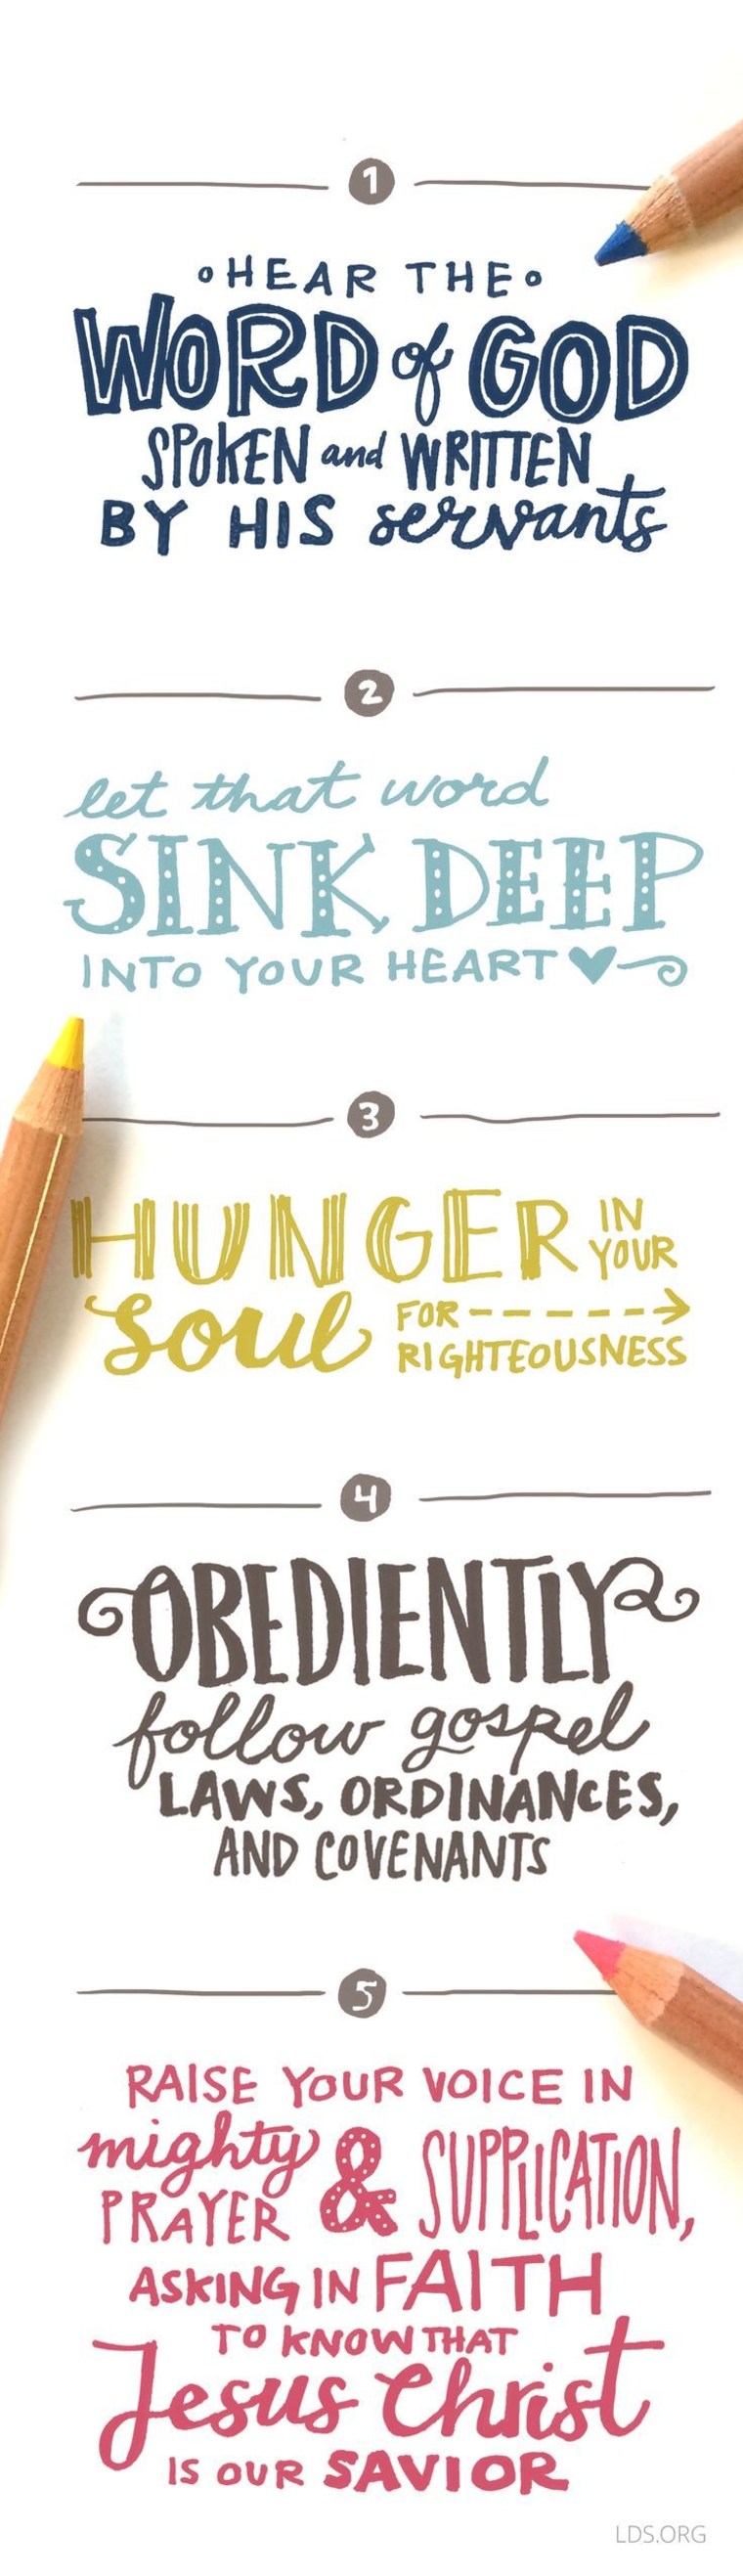 1
HEAR THE
WORD of GOD
SPOKEN and WRITTEN
BY HIS servants
2
let that word
SINK DEEP
INTO YOUR HEART
3
HUNGER IN YOUR
soul FOR RIGHTEOUSNESS
4
OBEDIENTLY
follow gospel
LAWS, ORDINANCES,
AND COVENANTS
5
RAISE YOUR VOICE IN
mighty PRAYER & SUPPLICATION,
ASKING IN FAITH
TO KNOW THAT
Jesus Christ
IS OUR SAVIOR
LDS.ORG